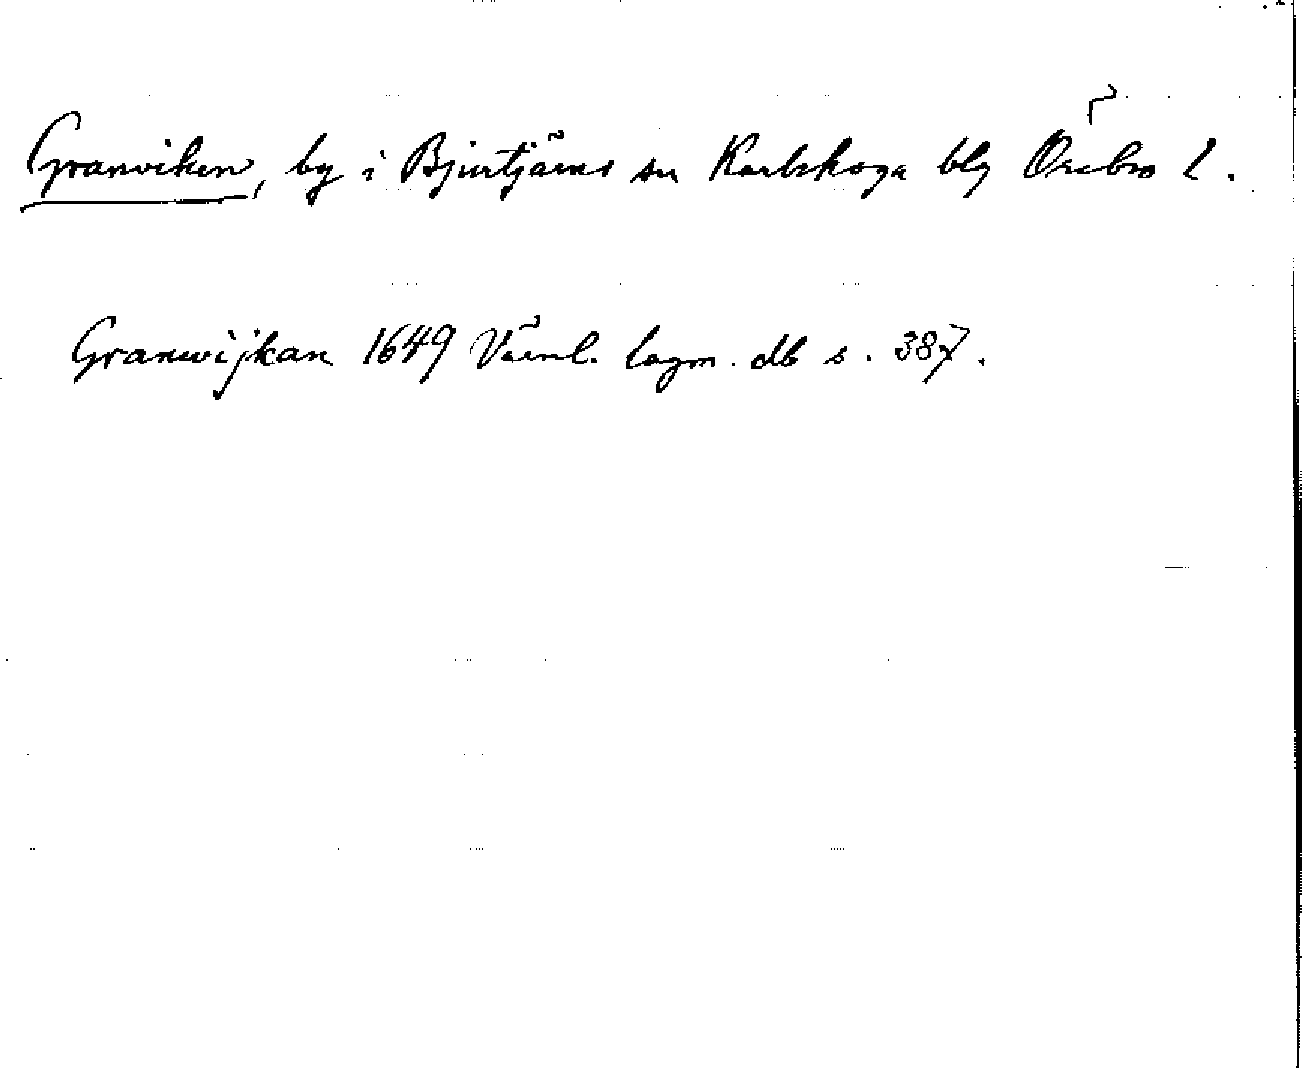 Granviken, by i Bjurtjärns sn Karlskoga blg Örebro l.
Granwijkan 1649 Värml. lagm. db s. 387.